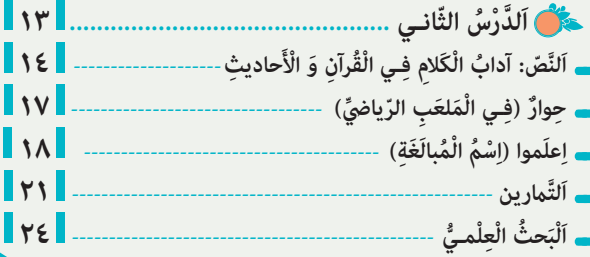 اَلدَّرْسُ الثّانـي ١٣
اَلنَّصّ: آدابُ الْكَلامِ فِـي الْقُرآنِ وَ الْأَحاديثِ ١٤
حِوارٌ (فِـي الْمَلعَبِ الرّياضيِّ) ١٧
اِعلَموا (اِسْمُ الْمُبالَغَةِ) ١٨
اَلتَّمارين ٢١
اَلْبَحثُ الْعِلْمـيُّ ٢٤